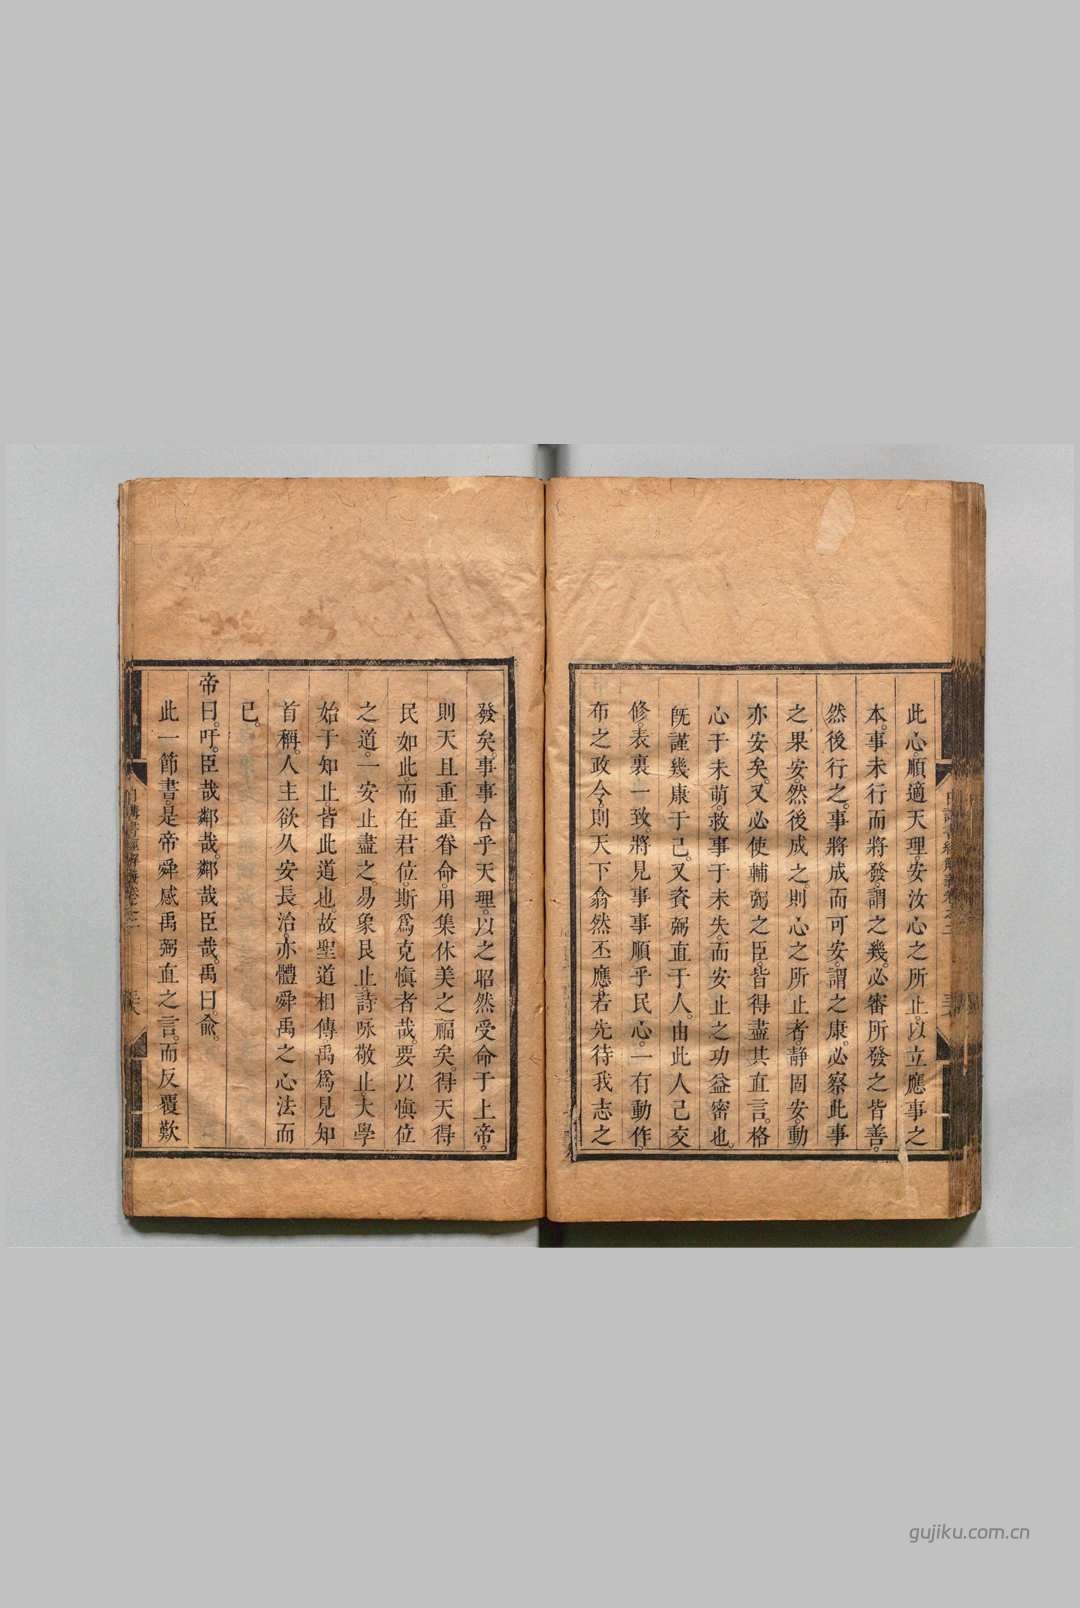 此心順適天理安汝心之所止以立應事之
本。事未行而將發。謂之幾。必審所發之皆善。
然後行之。事將成而可安。謂之康。必察此事
之果安。然後成之。則心之所止者。靜固安。動
亦安矣。又必使輔弼之臣。皆得盡其直言。格
心于未萌。救事于未失。而安止之功益密也。
旣謹幾康于己。又資弼直于人。由此人己交
修。表裏一致。將見事事順乎民心。一有動作。
布之政令。則天下翕然丕應。若先待我志之
發矣。事事合乎天理。以之昭然受命于上帝。
則天且重重眷命。用集休美之福矣。得天得
民如此。而在君位。斯爲克愼者哉。要以愼位
之道。一安止盡之。易象艮止。詩咏敬止。大學
始于知止。皆此道也。故聖道相傳。禹爲見知
首稱。人主欲久安長治。亦體舜禹之心法而
已。
帝曰。吁。臣哉鄰哉。鄰哉臣哉。禹曰。俞。
此一節書。是帝舜感禹弼直之言。而反覆歎
日講書經解義卷之二
gujiku.com.cn